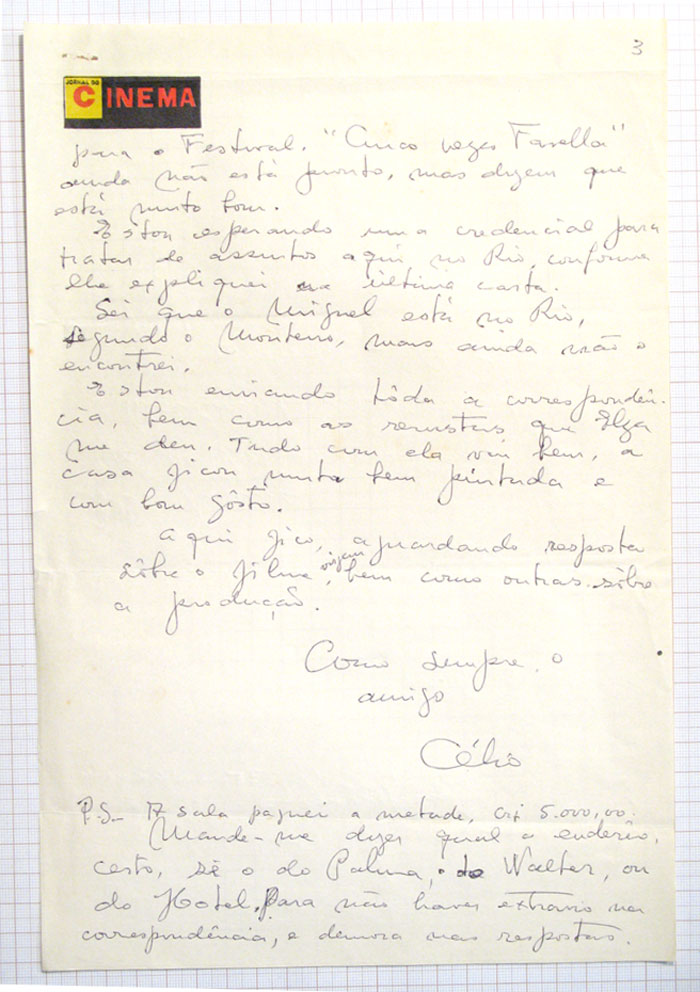 3
JORNAL DO
CINEMA
para o Festival. "Cinco vezes Favella"
ainda não está pronto, mas dizem que
está muito bom.
Estou esperando uma credencial para
tratar de assuntos aqui no Rio, conforme
lhe expliquei na última carta.
Sei que o Miguel está no Rio,
segundo o Monteiro, mas ainda não o
encontrei.
Estou enviando tôda a correspondên-
cia, bem como as revistas que Elza
me deu. Tudo com ela vai bem, a
casa ficou muito bem pintada e
com bom gôsto.
Aqui fico, aguardando resposta
sôbre o filme, bem como outras sôbre
a produção.
Como sempre o
amigo
Célio
P.S. - A sala paguei a metade, cr$ 5.000,00.
Mande-me dizer qual o enderêço
certo, se o do Palma, o do Walter, ou
do Hotel. Para não haver extravio na
correspondência, e demora nas respostas.